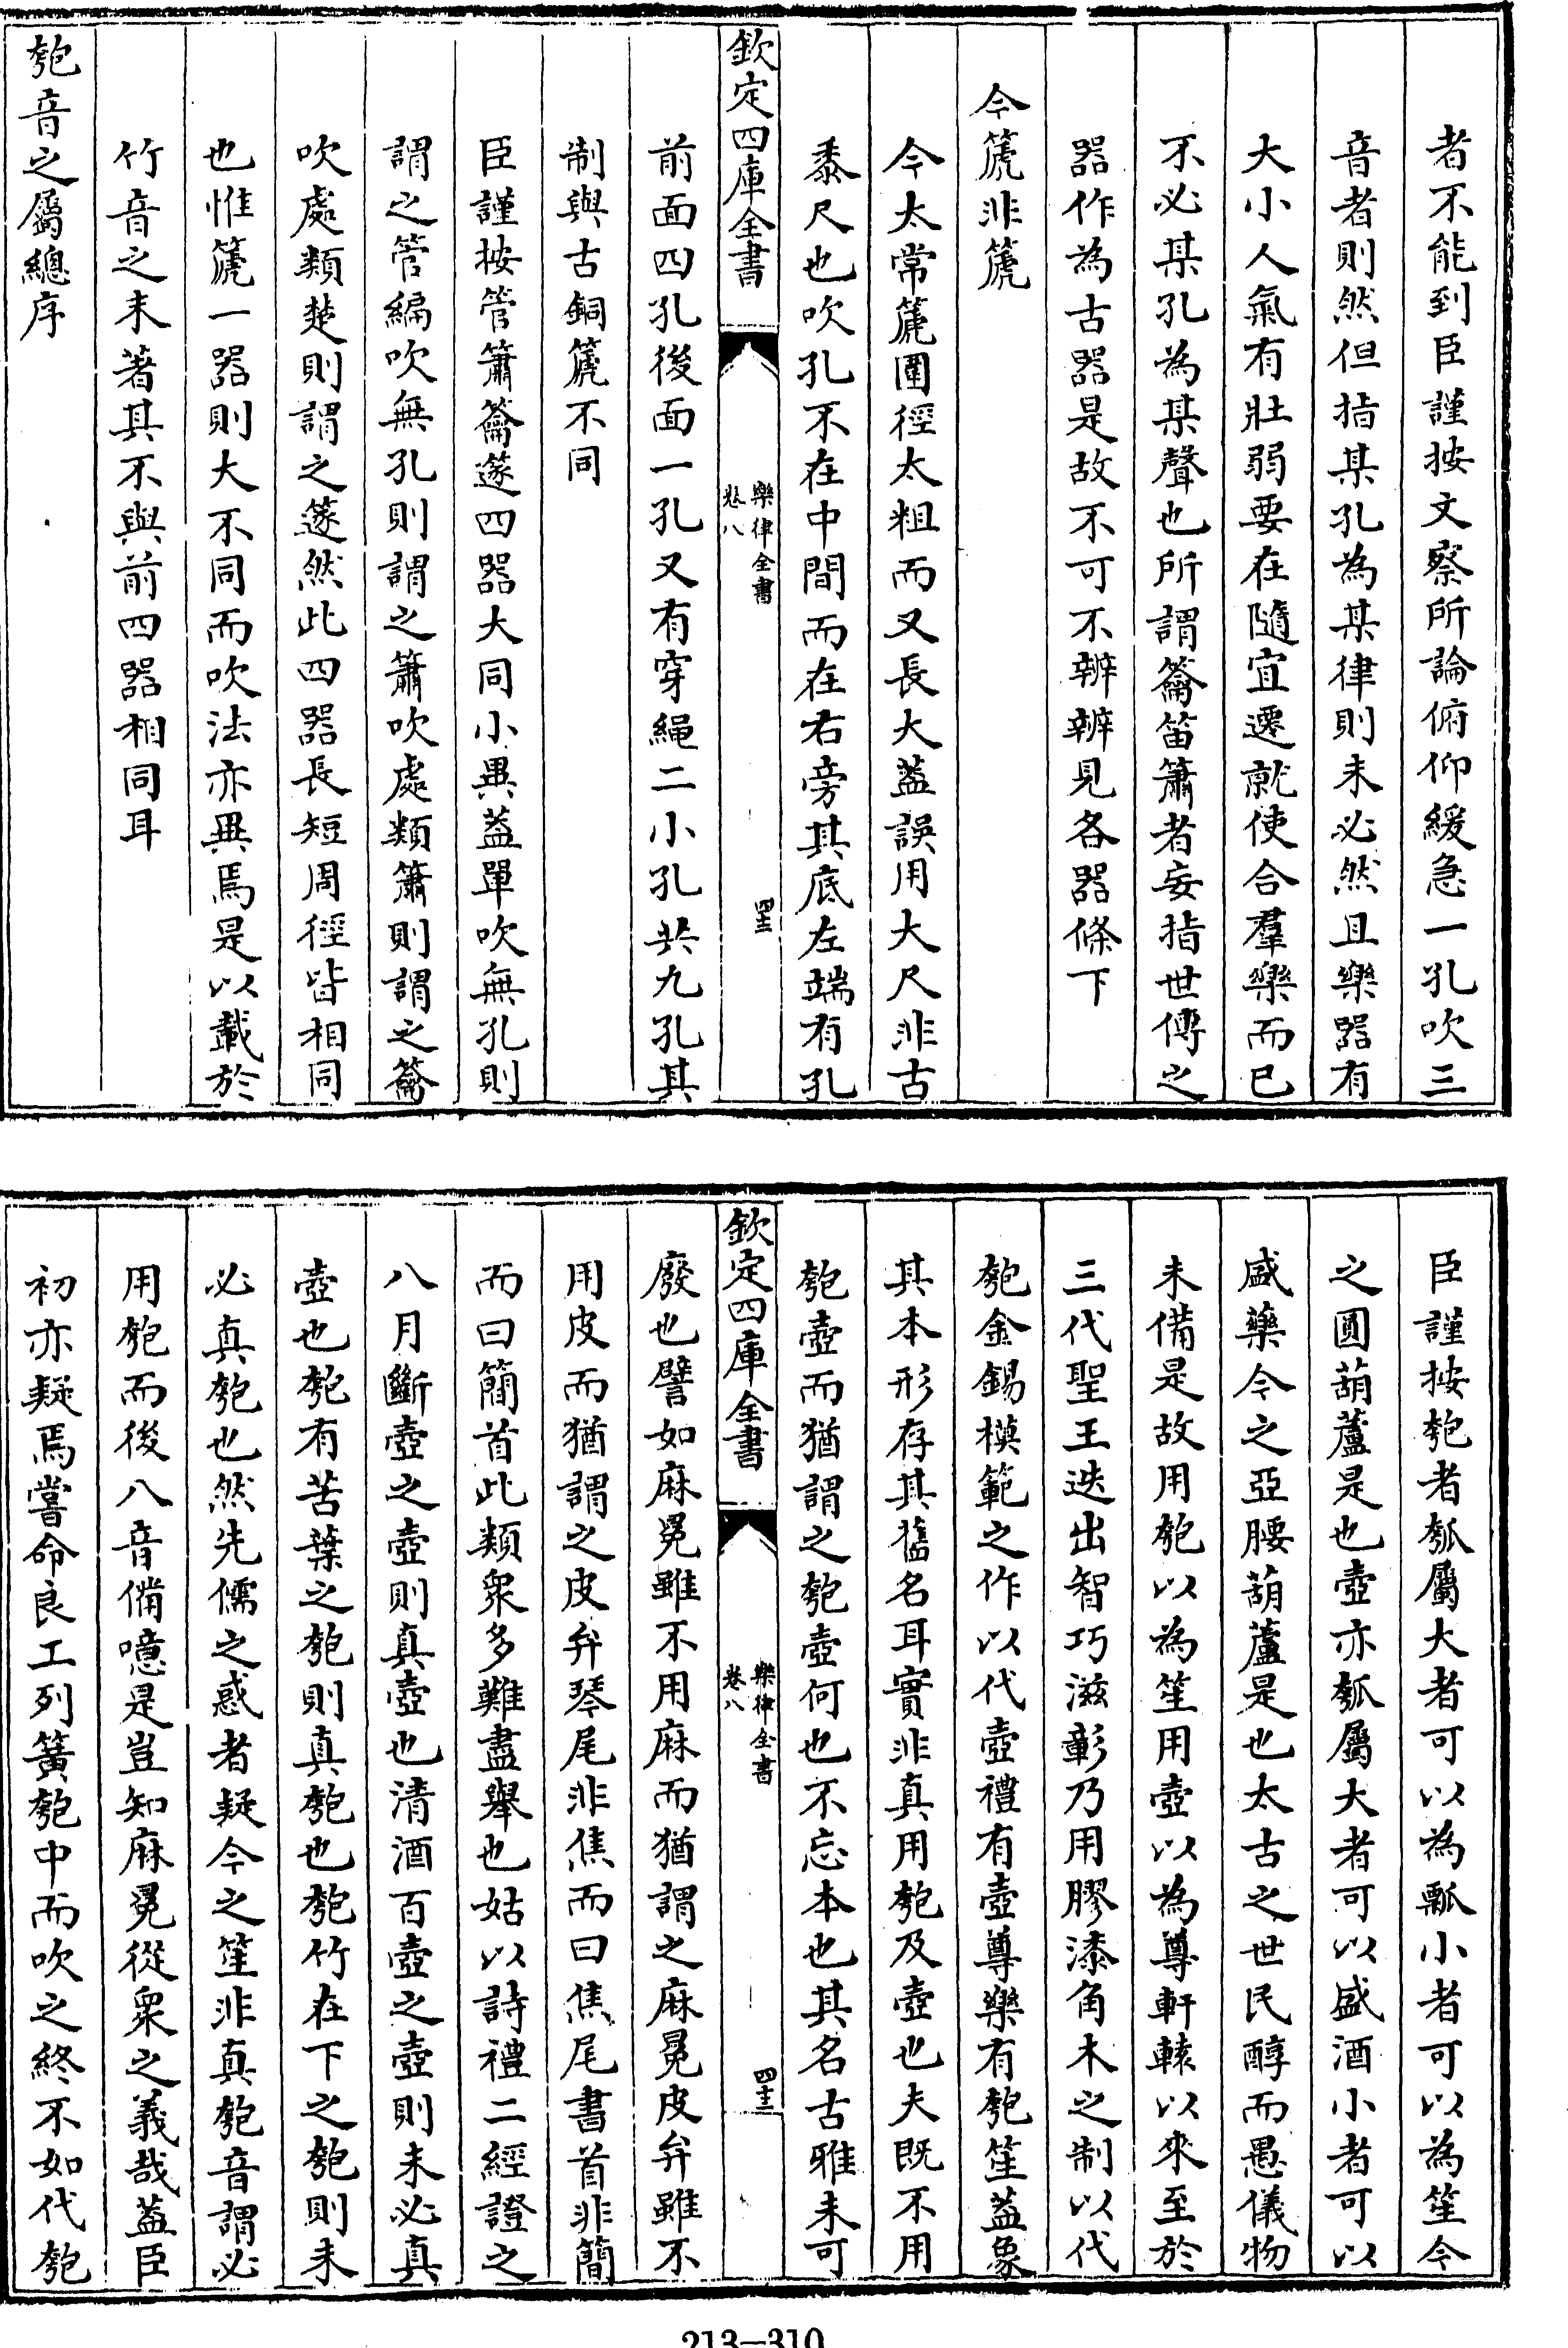 者不能到臣謹按文察所論俯仰緩急一孔吹三
音者則然但指某孔為某律則未必然且樂器有
大小人氣有壯弱要在隨宜遷就使合羣樂而已
不必某孔為某聲也所謂籥笛簫者妄指世傳之
器作為古器是故不可不辨辨見各器條下
今篪非篪
今太常篪圍徑太粗而又長大蓋誤用大尺非古
黍尺也吹孔不在中間而在右旁其底左端有孔
欽定四庫全書
樂律全書
卷八
前面四孔後面一孔又有穿繩二小孔共九孔其
制與古銅篪不同
臣謹按管簫籥篴四器大同小異蓋單吹無孔則
謂之管編吹無孔則謂之簫吹處類簫則謂之籥
吹處類楚則謂之篴然此四器長短周徑皆相同
也惟篪一器則大不同而吹法亦異焉是以載於
竹音之末著其不與前四器相同耳
匏音之屬總序
臣謹按匏者瓠屬大者可以為瓢小者可以為笙今
之圓葫蘆是也壺亦瓠屬大者可以盛酒小者可以
盛藥今之亞腰葫蘆是也太古之世民醇而愚儀物
未備是故用匏以為笙用壺以為尊軒轅以來至於
三代聖王迭出智巧滋彰乃用膠漆角木之制以代
匏金錫模範之作以代壺禮有壺尊樂有匏笙蓋象
其本形存其舊名耳實非真用匏及壺也夫既不用
匏壺而猶謂之匏壺何也不忘本也其名古雅未可
欽定四庫全書
樂律全書
卷八
廢也譬如麻冕雖不用麻而猶謂之麻冕皮弁雖不
用皮而猶謂之皮弁琴尾非焦而曰焦尾書首非簡
而曰簡首此類衆多難盡舉也姑以詩禮二經證之
八月斷壺之壺則真壺也清酒百壺之壺則未必真
壺也匏有苦葉之匏則真匏也匏竹在下之匏則未
必真匏也然先儒之惑者疑今之笙非真匏音謂必
用匏而後八音備噫是豈知麻冕從衆之義哉蓋臣
初亦疑焉嘗命良工列簧匏中而吹之終不如代匏
213-310